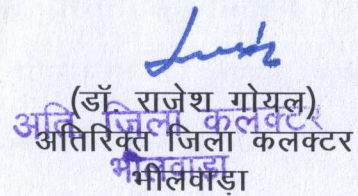 (डॉ. राजेश गोयल)
अति जिला कलेक्टर
अतिरिक्त जिला कलक्टर
भीलवाड़ा
भीलवाड़ा